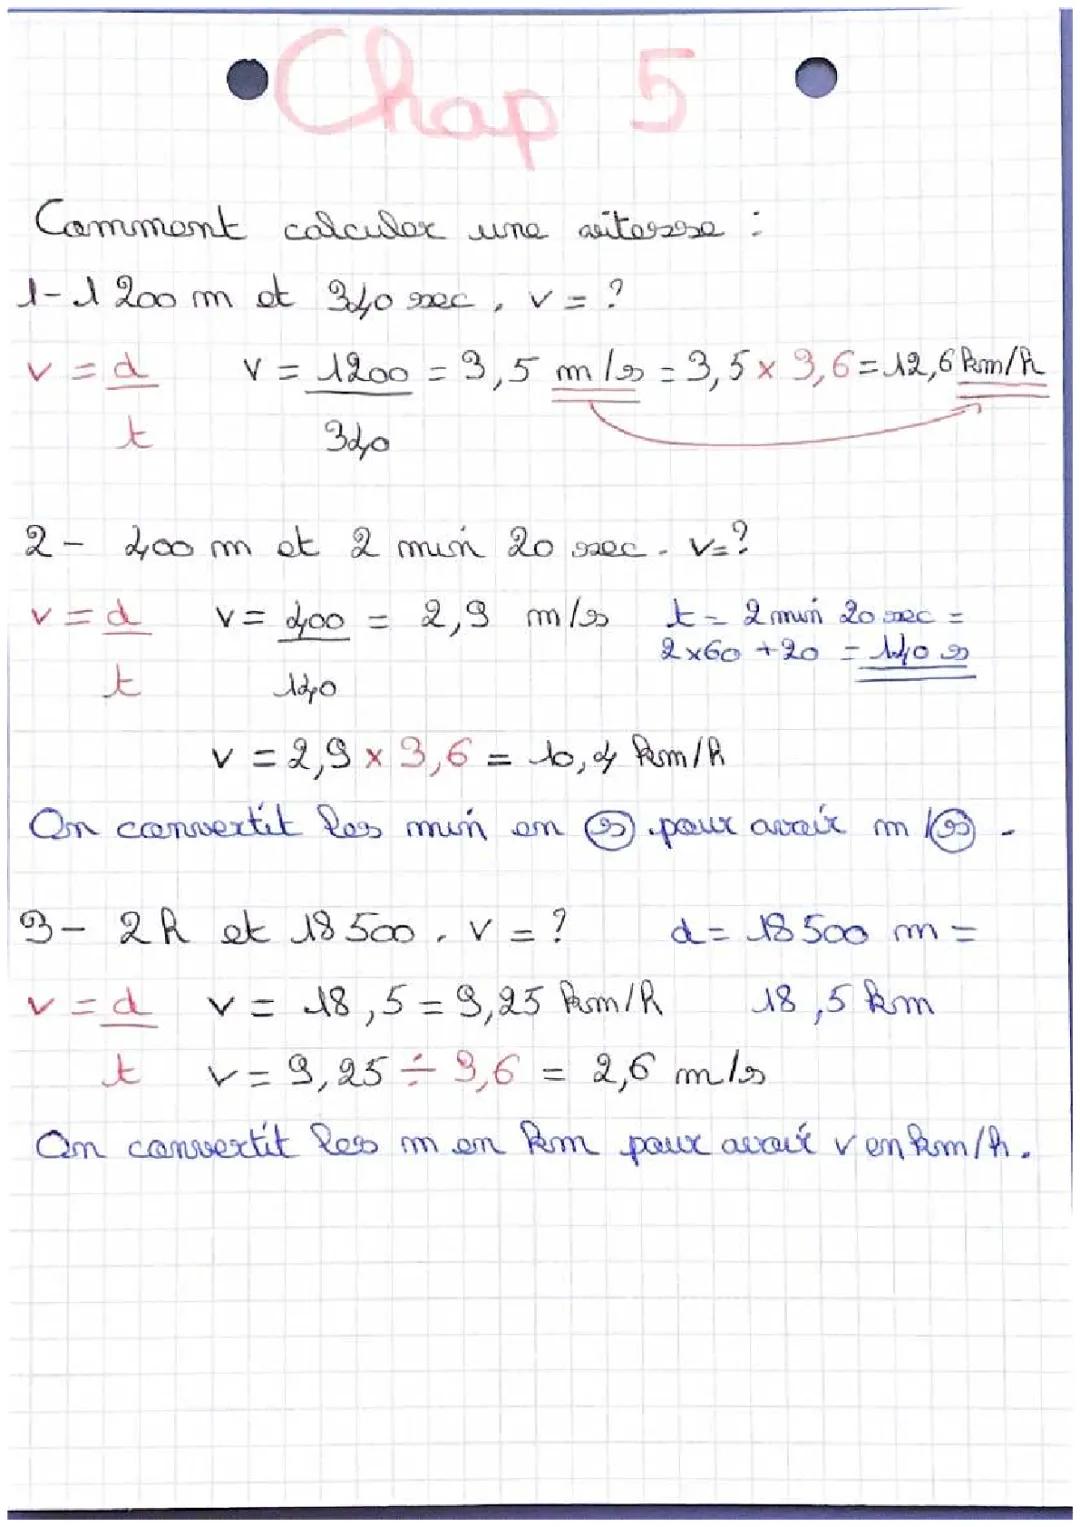 Chap 5
Comment calculer une vitesse :
1- 1 200 m et 340 sec, v = ?
v = d/t v = 1200/340 = 3,5 m/s = 3,5 x 3,6 = 12,6 km/h
2 - 400 m et 2 min 20 sec. v=?
v = d/t v = 400/140 = 2,9 m/s t = 2 min 20 sec =
2 x 60 + 20 = 140 s
v = 2,9 x 3,6 = 10,4 km/h
On convertit les min en s pour avoir m/s.
3- 2h et 18 500. v = ? d = 18 500 m =
v = d/t v = 18,5 = 9,25 km/h 18,5 km
v = 9,25 ÷ 3,6 = 2,6 m/s
On convertit les m en km pour avoir v en km/h.